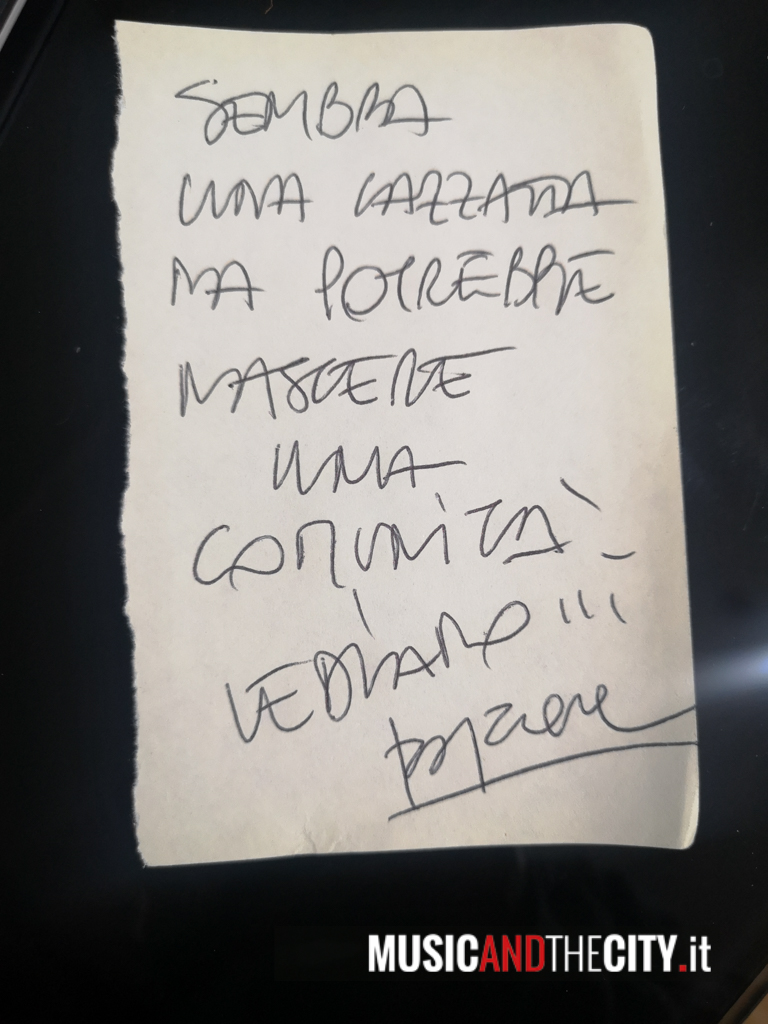 SEMBRA
UNA CAZZATA
MA POTREBBE
NASCERE
UNA
COMUNITÀ –
VEDIAMO !!!
MUSICANDTHECITY.it